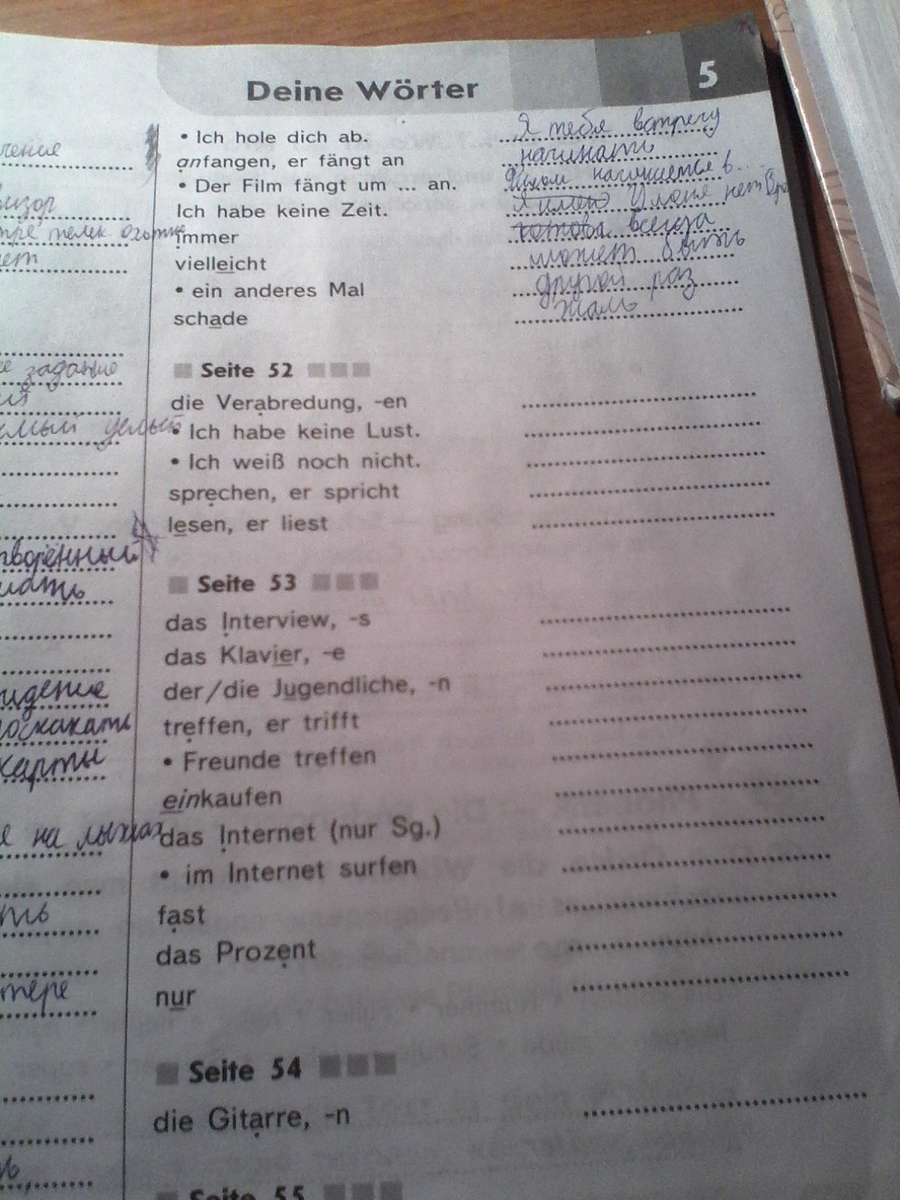 Deine Wörter 5
чение
визор
ет
е задание
ия
самый
творенный
идение
карты
е на лыжах
ть
тере
• Ich hole dich ab. Я тебя встречу
anfangen, er fängt an начинать
• Der Film fängt um ... an. Фильм начинается в...
Ich habe keine Zeit. У меня нет
immer всегда
vielleicht может быть
• ein anderes Mal другой раз
schade жаль
Seite 52
die Verabredung, -en
• Ich habe keine Lust.
• Ich weiß noch nicht.
sprechen, er spricht
lesen, er liest
Seite 53
das Interview, -s
das Klavier, -e
der/die Jugendliche, -n
treffen, er trifft
• Freunde treffen
einkaufen
das Internet (nur Sg.)
• im Internet surfen
fast
das Prozent
nur
Seite 54
die Gitarre, -n
Seite 55